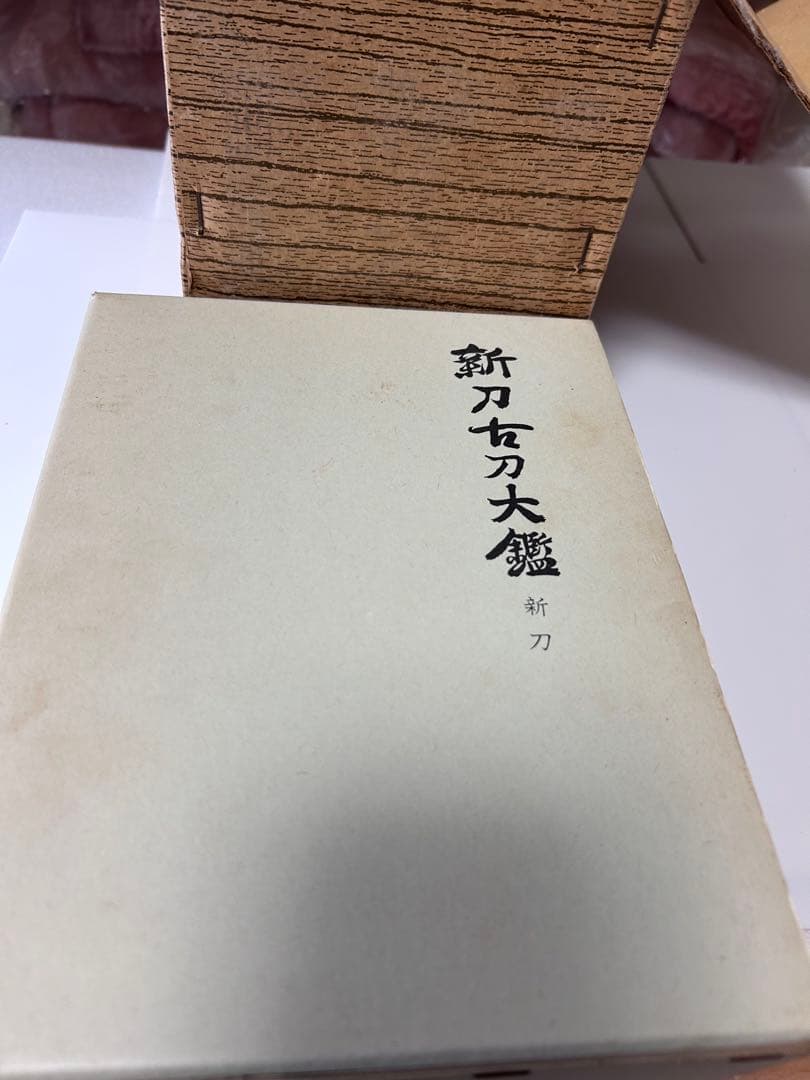 新刀古刀大鑑
新刀